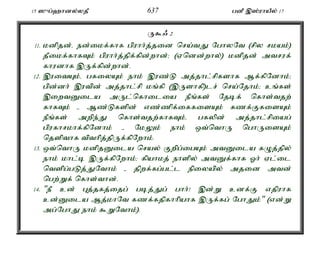 15 ஸுப்ஹானல்லதீ 637 பனீ இஸ்ராயீல் 17
ருகூஃ 2
11. மனிதன், நன்மைக்காக பிரார்த்தனை செய்வது போலவே (சில சமயம்)
தீமைக்காகவும் பிரார்த்திக்கின்றான்; (ஏனென்றால்) மனிதன் அவசரக்
காரனாக இருக்கின்றான்.
12. இரவையும், பகலையும் நாம் இரண்டு அத்தாட்சிகளாக ஆக்கினோம்;
பின்னர் இரவின் அத்தாட்சி மங்கி (இருளாகி)டச் செய்தோம்; உங்கள்
இறைவனுடைய அருட்கொடையை நீங்கள் தேடிக் கொள்வதற்
காகவும் – ஆண்டுகளின் எண்ணிக்கைகளையும் கணக்குகளையும்
நீங்கள் அறிந்து கொள்வதற்காகவும், பகலின் அத்தாட்சியைப்
பிரகாசமாக்கினோம் – மேலும் நாம் ஒவ்வொரு பொருளையும்
தெளிவாக விவரித்திருக்கிறோம்.
13. ஒவ்வொரு மனிதனுடைய செயல் குறிப்பையும் அவனுடைய கழுத்தில்
நாம் மாட்டி இருக்கிறோம்; கியாமத் நாளில் அவனுக்காக ஓர் ஏட்டை
வெளிப்படுத்துவோம் – திறக்கப்பட்ட நிலையில் அதனை அவன்
பெற்றுக் கொள்வான்.
14. "நீ உன் புத்தகத்தைப் படித்துப் பார்! இன்று உனக்கு எதிராக
உன்னுடைய ஆத்மாவே கணக்கதிகாரியாக இருக்கப் போதும்" (என்று
அப்போது நாம் கூறுவோம்).